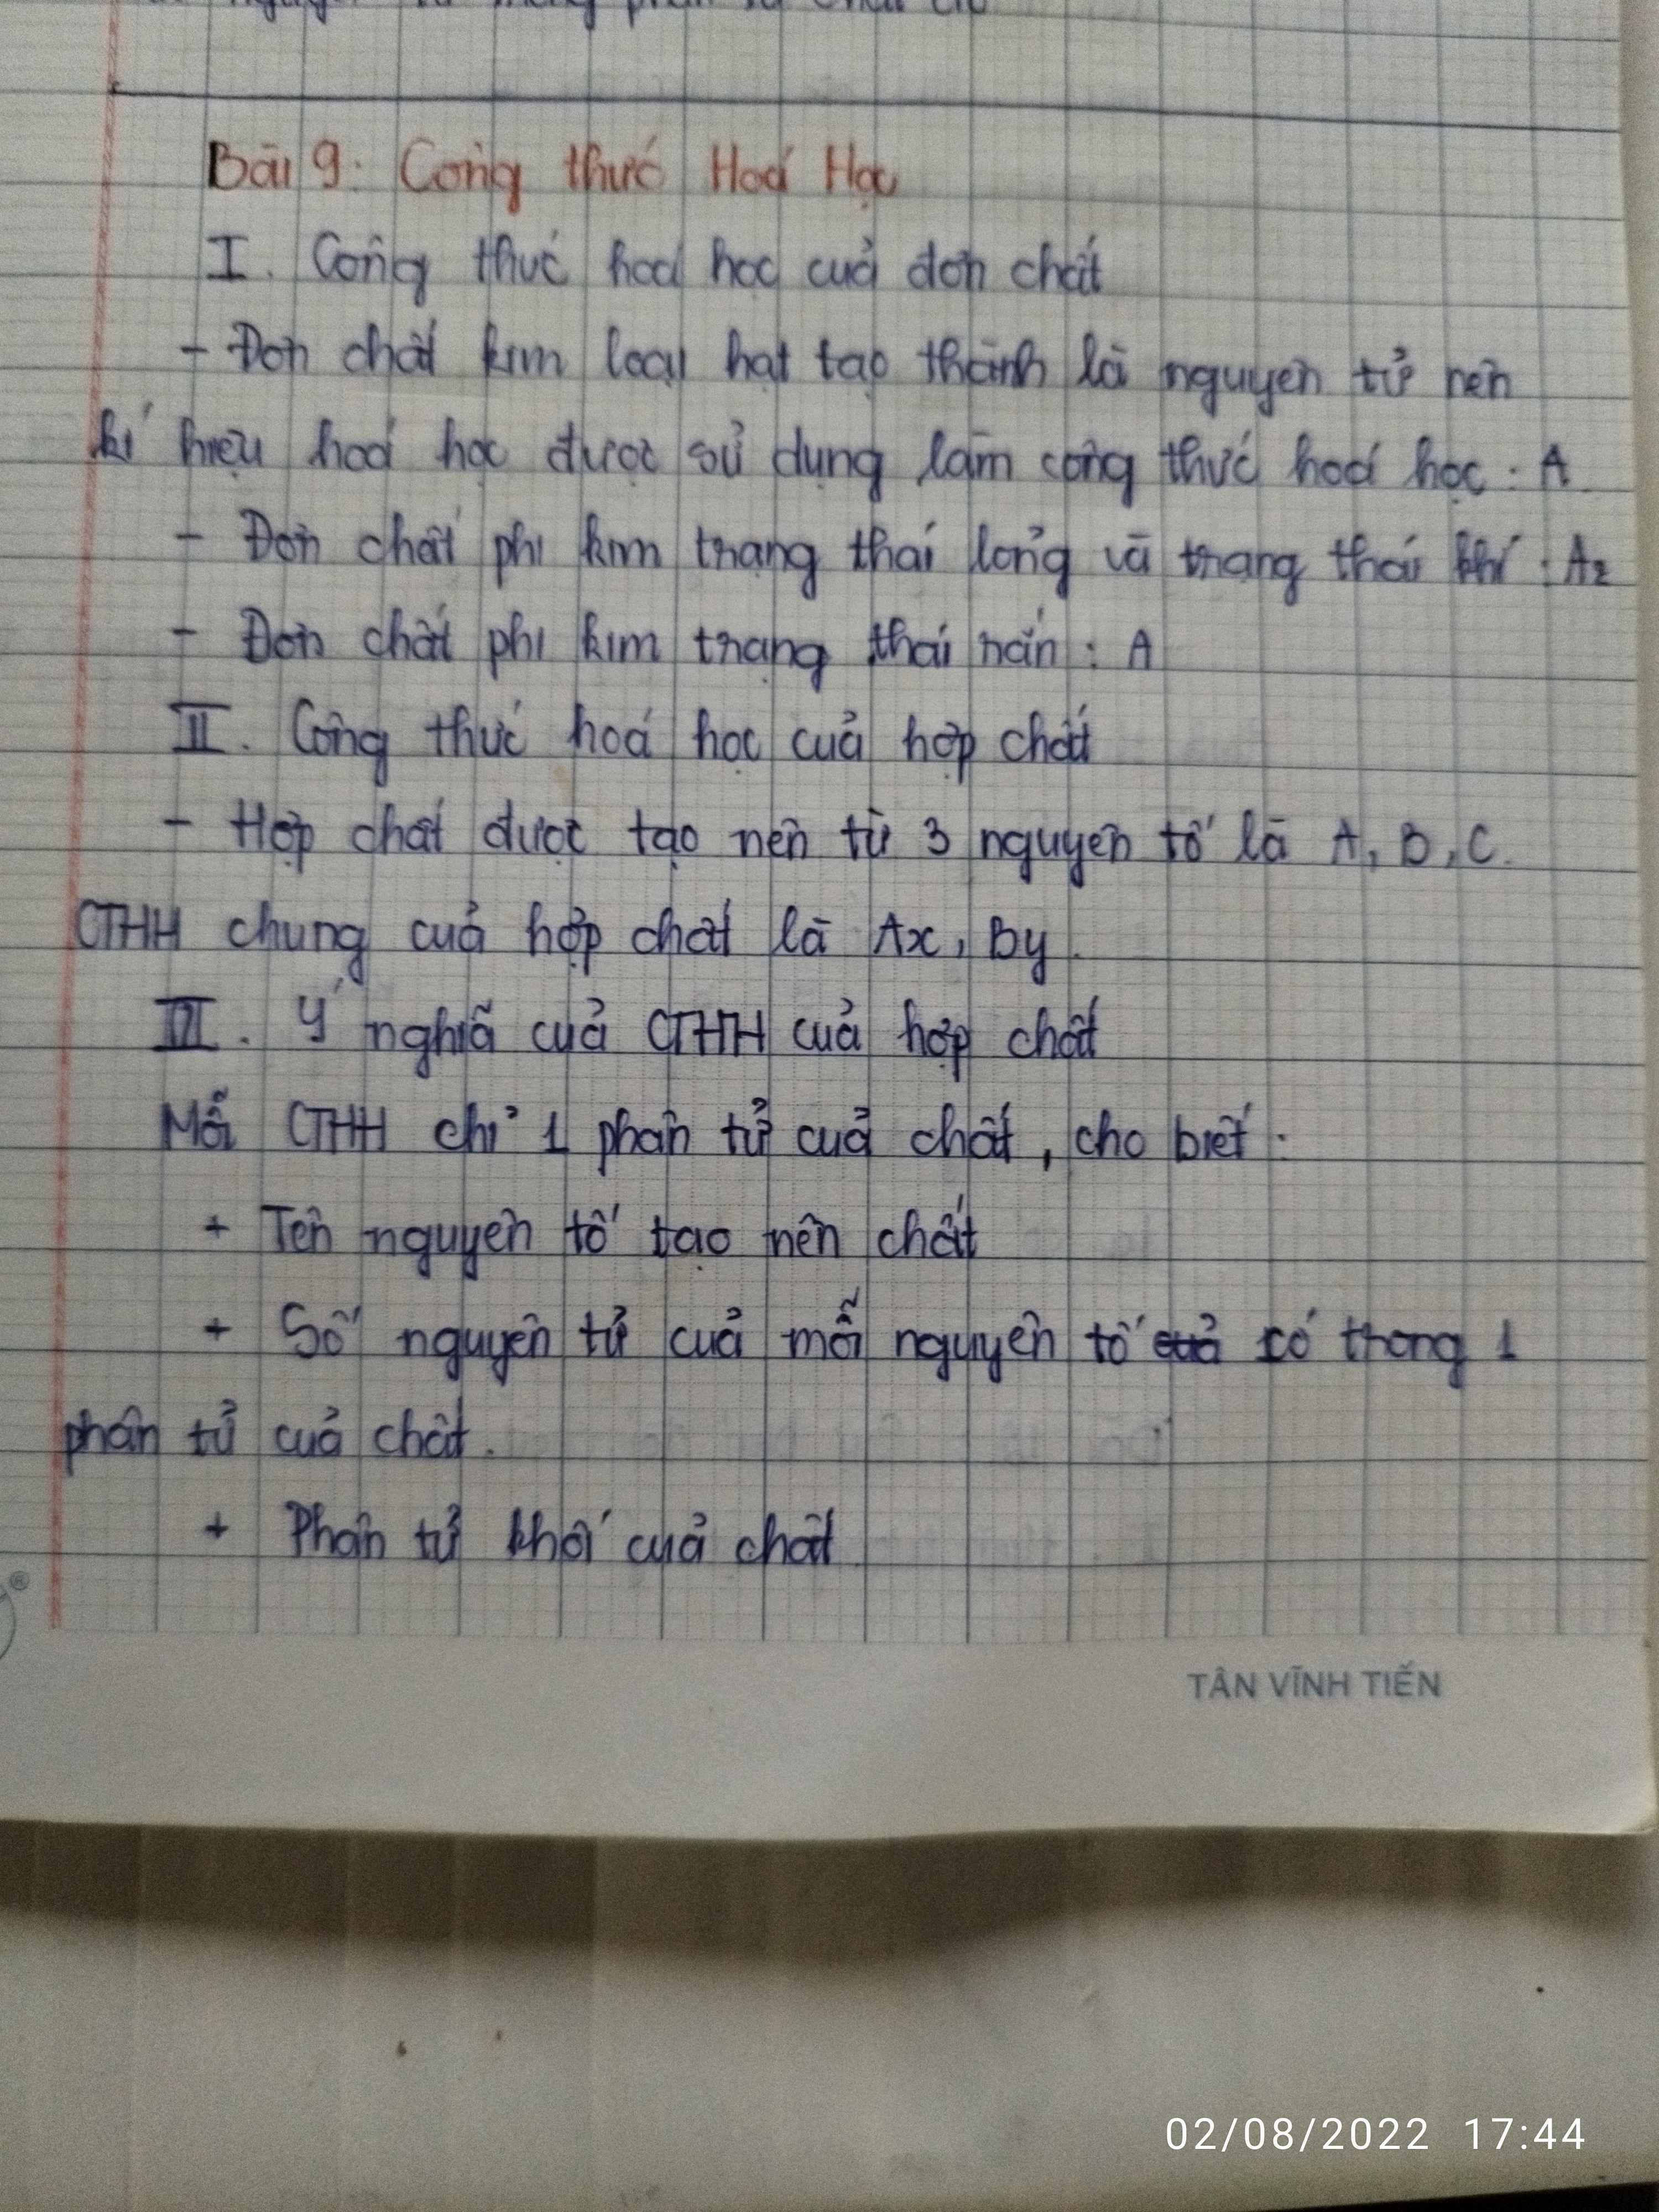 Bài 9: Công thức Hoá Học
I. Công thức hoá học của đơn chất
- Đơn chất kim loại hạt tạo thành là nguyên tử nên
kí hiệu hoá học được sử dụng làm công thức hoá học: A
- Đơn chất phi kim trạng thái lỏng và trạng thái khí: A₂
- Đơn chất phi kim trạng thái rắn: A
II. Công thức hoá học của hợp chất
- Hợp chất được tạo nên từ 3 nguyên tố là A, B, C.
CTHH chung của hợp chất là Ax, By.
III. Ý nghĩa của CTHH của hợp chất
Mỗi CTHH chỉ 1 phân tử của chất, cho biết:
+ Tên nguyên tố tạo nên chất
+ Số nguyên tử của mỗi nguyên tố của có trong 1
phân tử của chất.
+ Phân tử khối của chất
TÂN VĨNH TIẾN
02/08/2022 17:44